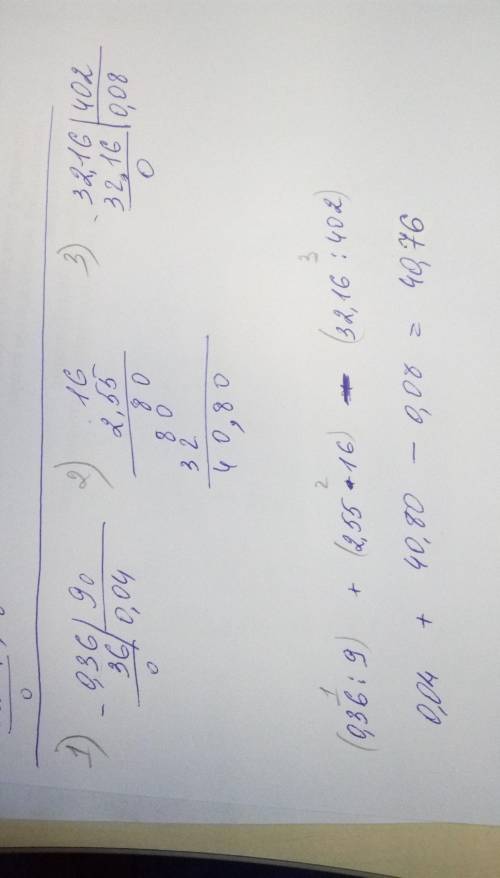 1) - 0,36 | 9
36 | 0,04
0
2) 16
2,55
80
80
32
40,80
3) - 32,16 | 402
32,16 | 0,08
0
1 2 3
(0,36 : 9) + (2,55 * 16) - (32,16 : 402)
0,04 + 40,80 - 0,08 = 40,76